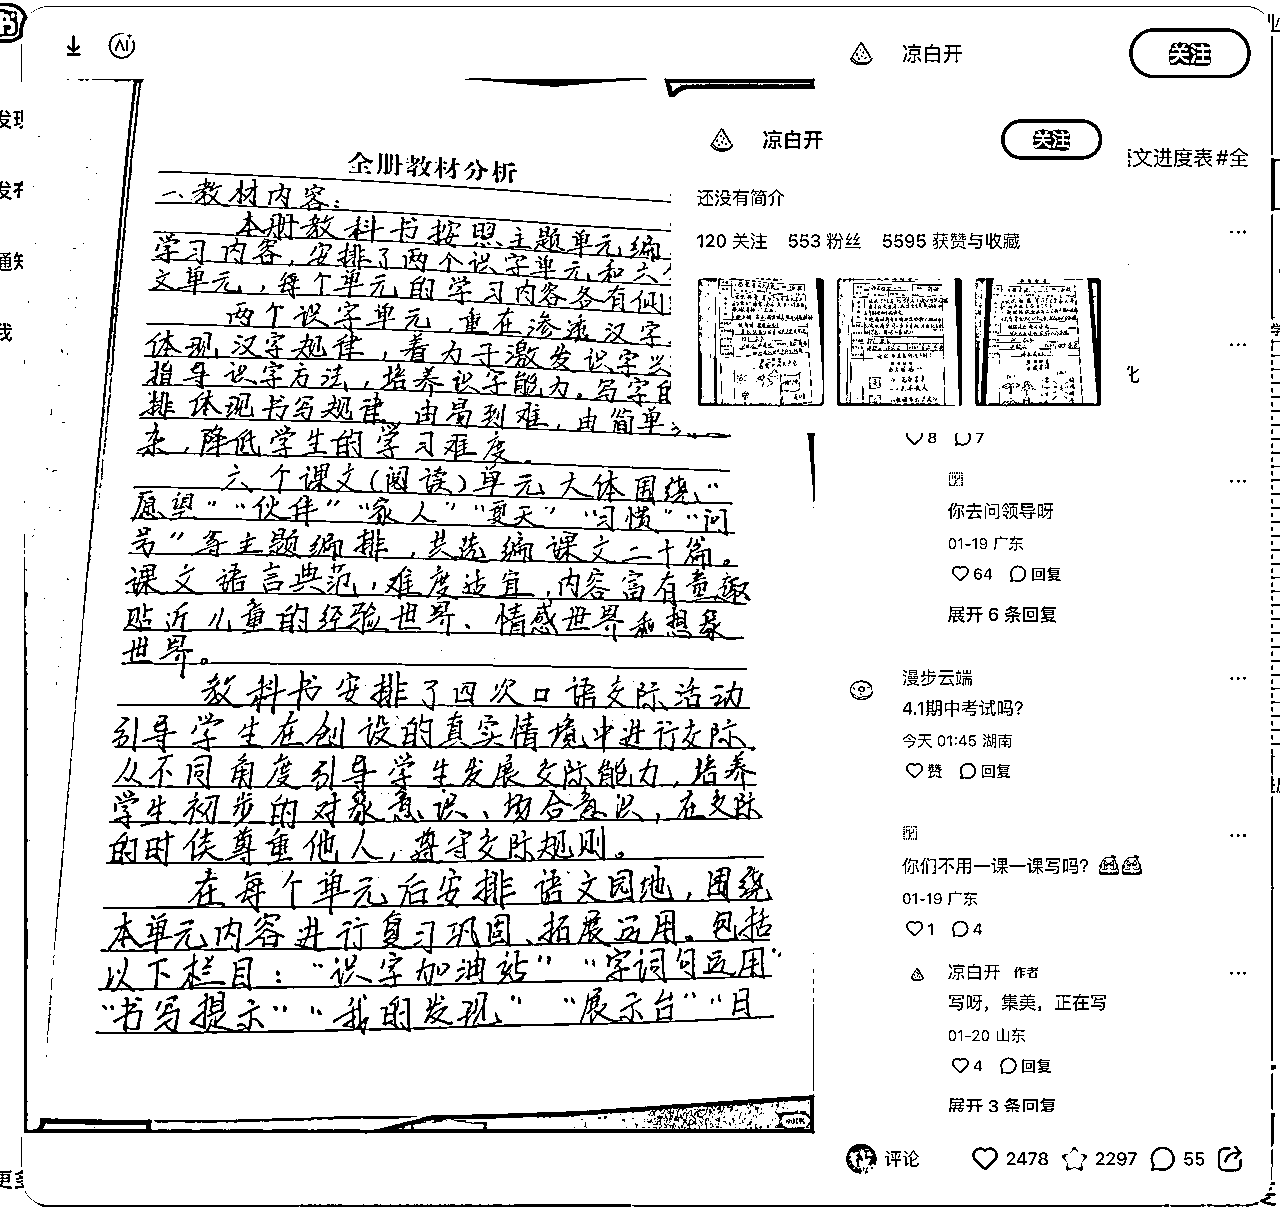 凉白开
关注
全册教材分析
一、教材内容:
本册教科书按照主题单元编
学习内容,安排了两个识字单元和六个
文单元,每个单元的学习内容各有侧
两个识字单元,重在渗透汉字
体现汉字规律,着力于激发识字兴
指导识字方法,培养识字能力。写字自
排体现书写规律,由易到难,由简单
杂,降低学生的学习难度。
六个课文(阅读)单元大体围绕“
愿望”“伙伴”“家人”“夏天”“习惯”“问
号”等主题编排,共选编课文二十篇。
课文语言典范,难度适宜,内容富有童趣
贴近儿童的经验世界、情感世界和想象
世界。
教科书安排了四次口语交际活动
引导学生在创设的真实情境中进行交际
从不同角度引导学生发展交际能力,培养
学生初步的对象意识、场合意识,在交际
的时候尊重他人,遵守交际规则。
在每个单元后安排语文园地,围绕
本单元内容进行复习巩固、拓展运用。包括
以下栏目:“识字加油站”“字词句运用”
“书写提示”“我的发现”“展示台”“日
凉白开
关注
语文进度表#全
还没有简介
120 关注 553 粉丝 5595 获赞与收藏
8 7
你去问领导呀
01-19 广东
64 回复
展开 6 条回复
漫步云端
4.1期中考试吗?
今天 01:45 湖南
赞 回复
你们不用一课一课写吗?
01-19 广东
1 4
凉白开 作者
写呀,集美,正在写
01-20 山东
4 回复
展开 3 条回复
评论 2478 2297 55
发现
发布
通知
我
更多